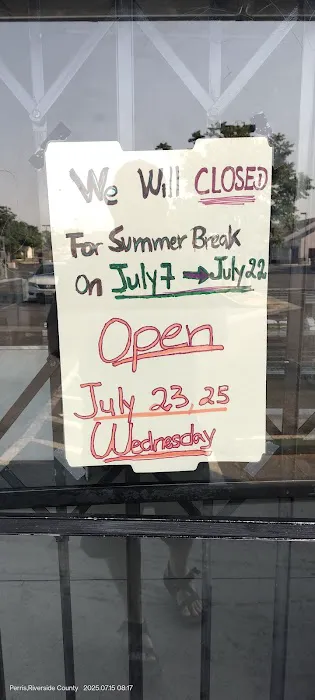 We Will CLOSED
For Summer Break
On July 7 → July 22
Open
July 23, 25
Wednesday
Perris,Riverside County 2025.07.15 08:17